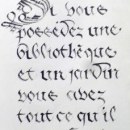 Si vous
possedez une
bibliothèque
et un jardin
vous avez
tout ce qu'il